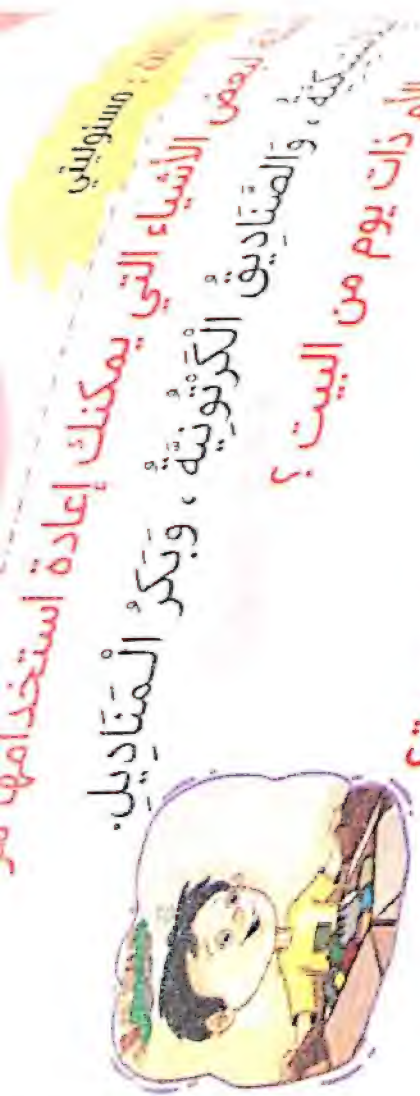 مسئوليتي
لبعض الأشياء التي يمكنك إعادة استخدامها
وَالصَّنَادِيقُ الْكَرْتُونِيَّةُ ، وَبَكَرُ الْمَنَادِيلِ.
ذات يوم من البيت ؟
؟